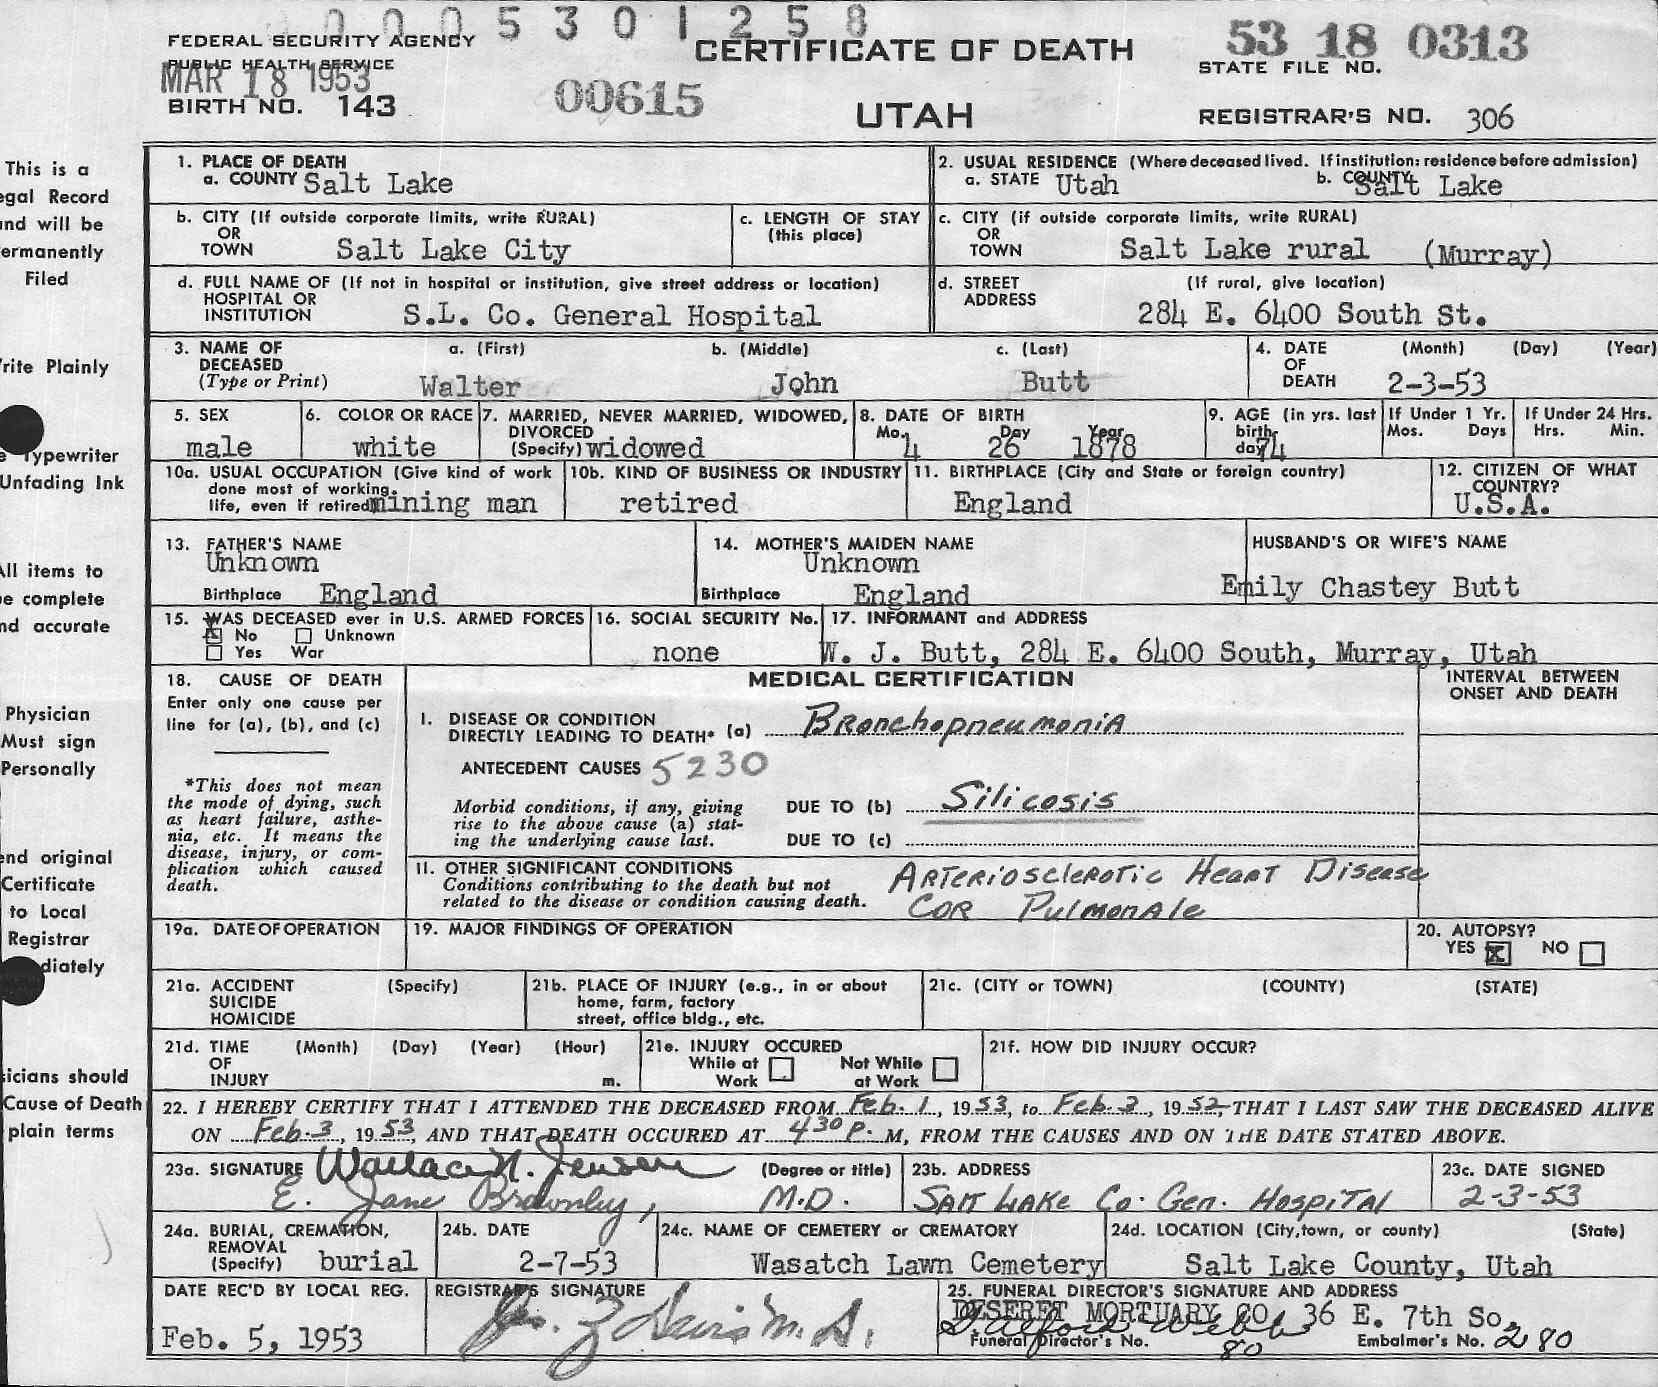 0005301258
FEDERAL SECURITY AGENCY
PUBLIC HEALTH SERVICE
MAR 18 1953
BIRTH NO. 143
00615
CERTIFICATE OF DEATH
UTAH
53 18 0313
STATE FILE NO.
REGISTRAR'S NO. 306
This is a
egal Record
and will be
ermanently
Filed
rite Plainly
Typewriter
Unfading Ink
All items to
be complete
nd accurate
Physician
Must sign
Personally
end original
Certificate
to Local
Registrar
diately
sicians should
Cause of Death
plain terms
1. PLACE OF DEATH
a. COUNTY Salt Lake
2. USUAL RESIDENCE (Where deceased lived. If institution: residence before admission)
a. STATE Utah b. COUNTY Salt Lake
b. CITY (If outside corporate limits, write RURAL)
OR
TOWN Salt Lake City
c. LENGTH OF STAY
(this place)
c. CITY (if outside corporate limits, write RURAL)
OR
TOWN Salt Lake rural (Murray)
d. FULL NAME OF (If not in hospital or institution, give street address or location)
HOSPITAL OR
INSTITUTION S.L. Co. General Hospital
d. STREET (If rural, give location)
ADDRESS
284 E. 6400 South St.
3. NAME OF a. (First) b. (Middle) c. (Last)
DECEASED
(Type or Print) Walter John Butt
4. DATE (Month) (Day) (Year)
OF
DEATH 2-3-53
5. SEX
male
6. COLOR OR RACE
white
7. MARRIED, NEVER MARRIED, WIDOWED,
DIVORCED
(Specify) widowed
8. DATE OF BIRTH
Mo. Day Year
4 26 1878
9. AGE (in yrs. last
birth-
day) 74
If Under 1 Yr.
Mos. Days
If Under 24 Hrs.
Hrs. Min.
10a. USUAL OCCUPATION (Give kind of work
done most of working
life, even if retired) mining man
10b. KIND OF BUSINESS OR INDUSTRY
retired
11. BIRTHPLACE (City and State or foreign country)
England
12. CITIZEN OF WHAT
COUNTRY?
U.S.A.
13. FATHER'S NAME
Unknown
Birthplace England
14. MOTHER'S MAIDEN NAME
Unknown
Birthplace England
HUSBAND'S OR WIFE'S NAME
Emily Chastey Butt
15. WAS DECEASED ever in U.S. ARMED FORCES
X No Unknown
Yes War
16. SOCIAL SECURITY No.
none
17. INFORMANT and ADDRESS
W. J. Butt, 284 E. 6400 South, Murray, Utah
18. CAUSE OF DEATH
Enter only one cause per
line for (a), (b), and (c)
*This does not mean
the mode of dying, such
as heart failure, asthe-
nia, etc. It means the
disease, injury, or com-
plication which caused
death.
MEDICAL CERTIFICATION
INTERVAL BETWEEN
ONSET AND DEATH
I. DISEASE OR CONDITION
DIRECTLY LEADING TO DEATH* (a) Bronchopneumonia
ANTECEDENT CAUSES 5230
Morbid conditions, if any, giving
rise to the above cause (a) stat-
ing the underlying cause last.
DUE TO (b) Silicosis
DUE TO (c)
II. OTHER SIGNIFICANT CONDITIONS
Conditions contributing to the death but not
related to the disease or condition causing death.
Arteriosclerotic Heart Disease
Cor Pulmonale
19a. DATE OF OPERATION
19. MAJOR FINDINGS OF OPERATION
20. AUTOPSY?
YES X NO
21a. ACCIDENT (Specify)
SUICIDE
HOMICIDE
21b. PLACE OF INJURY (e.g., in or about
home, farm, factory
street, office bldg., etc.
21c. (CITY or TOWN) (COUNTY) (STATE)
21d. TIME (Month) (Day) (Year) (Hour)
OF
INJURY m.
21e. INJURY OCCURED
While at Not While
Work at Work
21f. HOW DID INJURY OCCUR?
22. I HEREBY CERTIFY THAT I ATTENDED THE DECEASED FROM Feb. 1, 1953, to Feb. 3, 1953, THAT I LAST SAW THE DECEASED ALIVE
ON Feb. 3, 1953, AND THAT DEATH OCCURED AT 430 P. M, FROM THE CAUSES AND ON THE DATE STATED ABOVE.
23a. SIGNATURE Wallace N. Jensen (Degree or title)
E. Jane Brownley, M.D.
23b. ADDRESS
Salt Lake Co. Gen. Hospital
23c. DATE SIGNED
2-3-53
24a. BURIAL, CREMATION,
REMOVAL
(Specify) burial
24b. DATE
2-7-53
24c. NAME OF CEMETERY or CREMATORY
Wasatch Lawn Cemetery
24d. LOCATION (City, town, or county) (State)
Salt Lake County, Utah
DATE REC'D BY LOCAL REG.
Feb. 5, 1953
REGISTRAR'S SIGNATURE
M.D.
25. FUNERAL DIRECTOR'S SIGNATURE AND ADDRESS
DESERET MORTUARY CO 36 E. 7th So.
Webb
Funeral Director's No. 80
Embalmer's No. 280